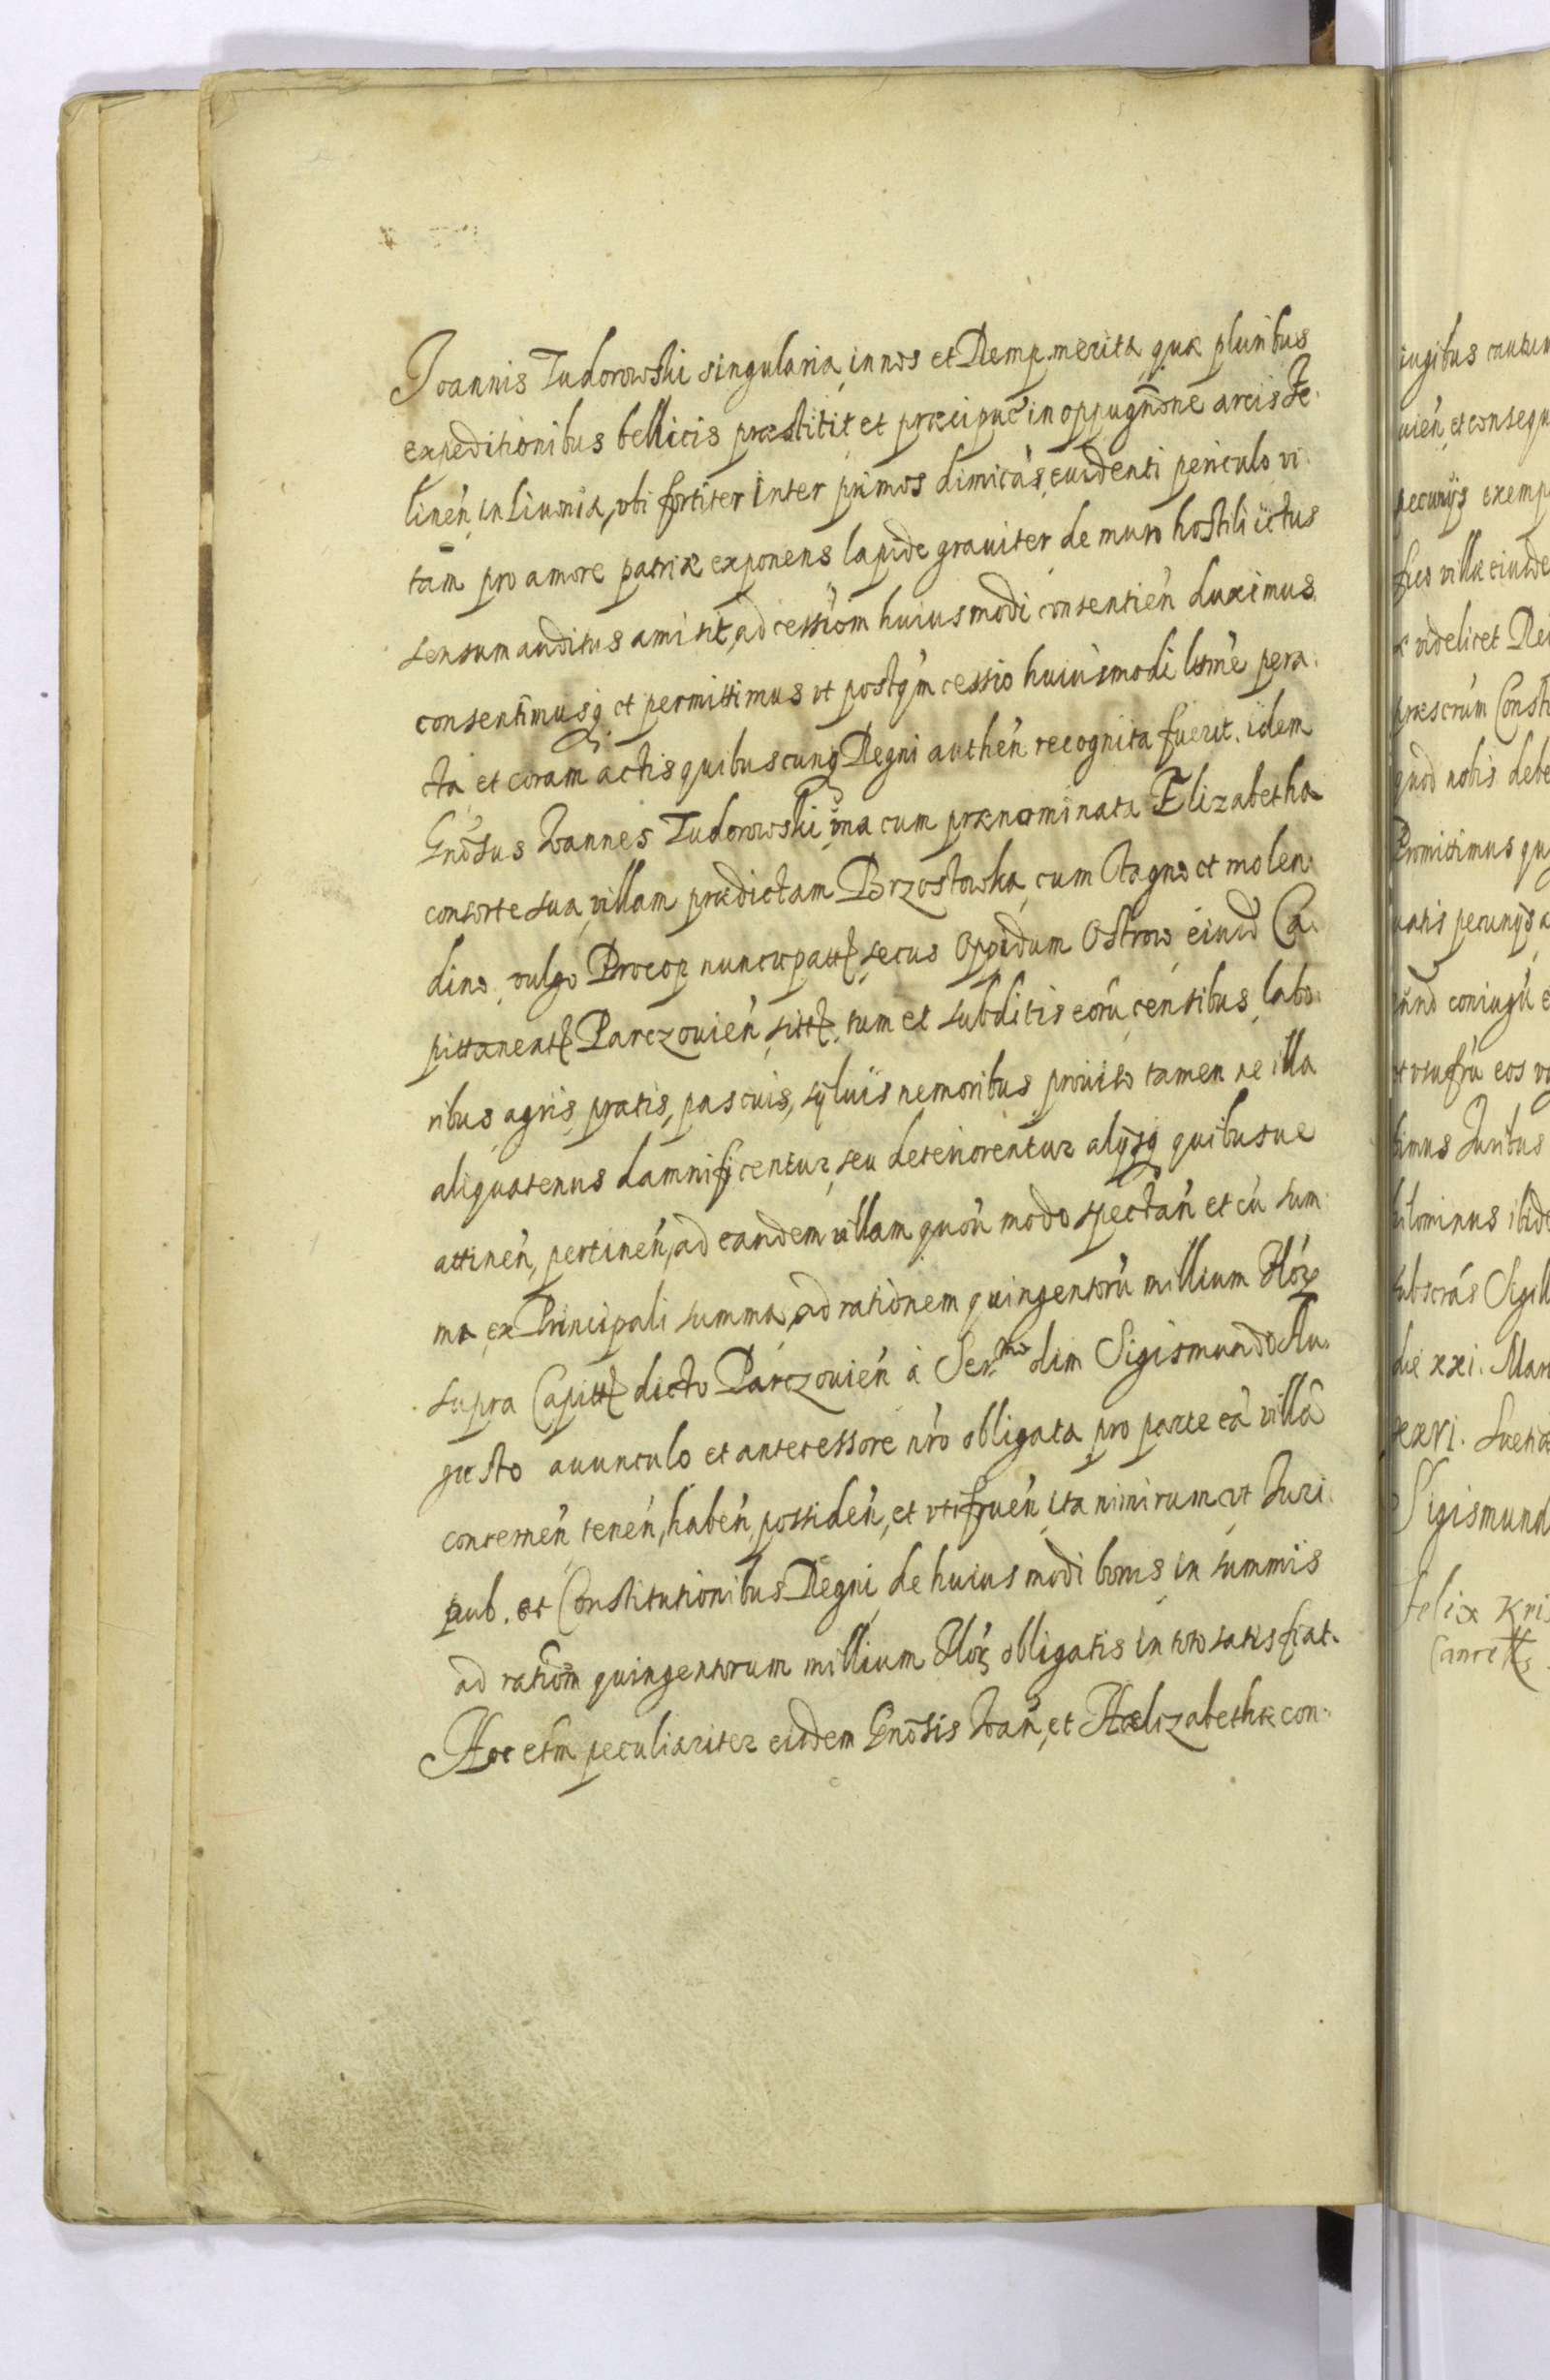 Joannis Tudorowski singularia in nos et Remp. merita quæ pluribus
expeditionibus bellicis præstitit et præcipuè in oppugnōne arcis Fe.
linen̄ in Livonia, vbi fortiter inter primos dimicās, evidenti periculo vi.
tam pro amore patriæ exponens lapide graviter de muro hostili ictus
sensum auditus amisit, ad cessiōm huiusmodi consentien̄ duximus.
consentimusq; et permittimus vt postq̄m cessio huiusmodi ltīme pera.
cta et coram actis quibuscunq; Regni authen̄ recognita fuerit. idem
Gnōsus Joannes Tudorowski vna cum prænominata Elizabetha
consorte sua, villam prædictam Brzostowka, cum stagno et molen.
dino, vulgo Procop nuncupatt, secus Oppidum Ostrow, eiusd Ca.
pittaneatt Parczovien̄ sitt, tum et subditis eorū, censibus, labo.
ribus, agris, pratis, pascuis, sÿlvis nemoribus, proviso tamen ne illa
aliquatenus damnificentur, seu deteriorentur alijsq; quibusue
attinen̄, pertinen̄, ad eandem villam quōu modo spectan̄ et cū sum
ma, ex Principali summa, ad rationem quingentorū millium Flōr
supra Capitt dicto Parczovien̄ à Ser.mo olim Sigismundo Au.
gusto avunculo et antecessore nr̄o obligata, pro parte eā villā
concernen̄ tenen̄, haben̄, possiden̄, et vtifruen̄, ita nimirum vt Juri.
pub. et Constitutionibus Regni, de huiusmodi bonis in summis
ad ratiōm quingentorum millium Flōr obligatis in toto satisfiat.
Hoc etm̄ peculiariter eisdem Gnōsis Joan̄, et Hælizabethæ con.
iugibus
vien̄, et consequ
pecunijs exemp
sus villæ eiusde
videlicet Re
præscrūm Const
quod nobis debe
Promittimus qu
vatis pecunijs a
coniugū e
vsufrū eos
timus Juribus
hilominus ibide
subscrās Sigill
die xxi. Mar
xxvi. Suetiæ
Sigismund
Felix Kri
Cancell